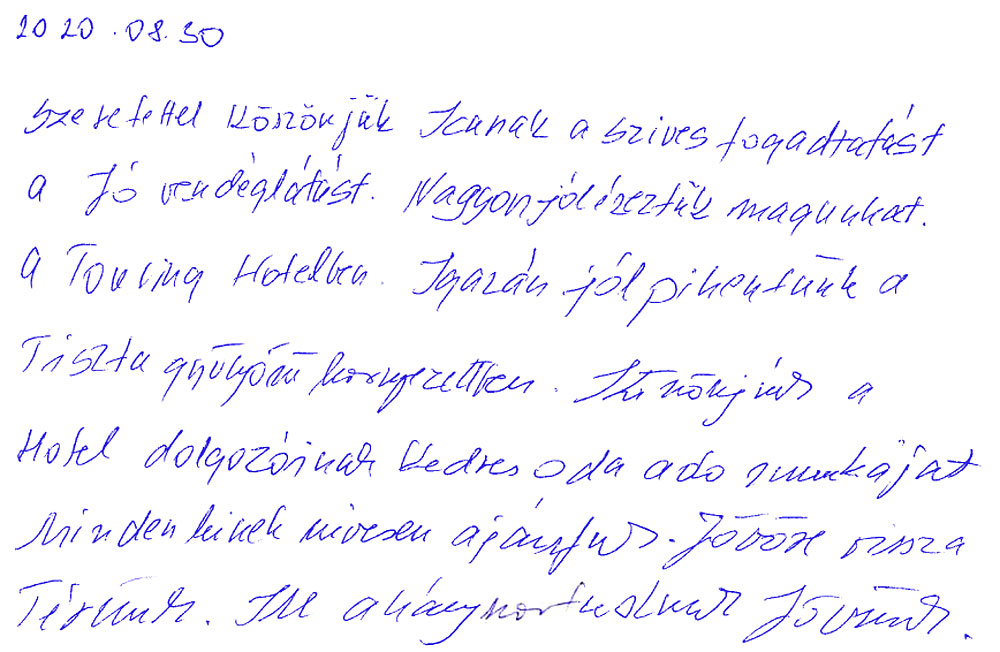 2020.08.30
Szeretettel Köszönjük Icunak a szives fogadtatást
a Jó vendéglátást. Nagyon jól éreztük magunkat.
A Touring Hotelben. Igazán jól pihentünk a
Tiszta gyönyörü kornyezettben. Köszönjük a
Hotel dolgozóinak Kedves oda ado munkáját
Mindenkinek szivesen ajánljuk. Jövöre vissza
Térünk. Ide ahányszor tudunk Jövünk.